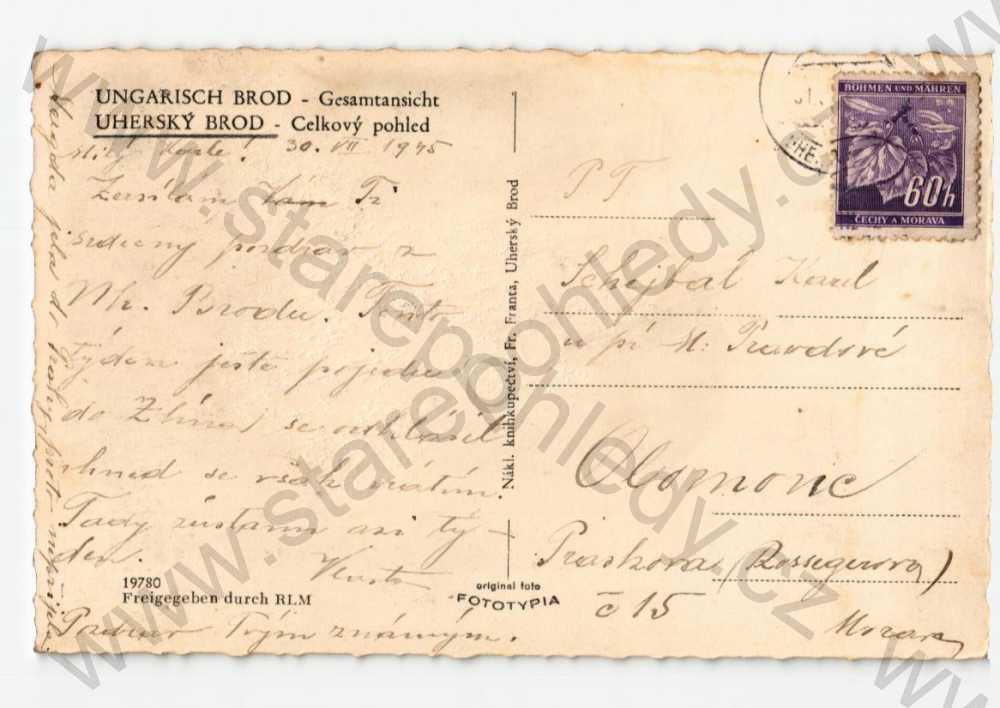 UNGARISCH BROD - Gesamtansicht
UHERSKÝ BROD - Celkový pohled
milý Karle! 30. VII 1945
Zasílám Vám Ti
srdečný pozdrav z
Uh. Brodu. Tento
týden ještě pojedu
do Zlína se
ihned se však vrátím.
Tady zůstanu asi tý-
den.
Vlasta
Pozdrav Tvým známým.
19780
Freigegeben durch RLM
original foto
FOTOTYPIA
Nákl. knihkupectví, Fr. Franta, Uherský Brod
BÖHMEN UND MÄHREN
60h
ČECHY A MORAVA
PT
Schejbal Karel
u pí
Olomouc
č 15
Morava
www.starepohledy.cz